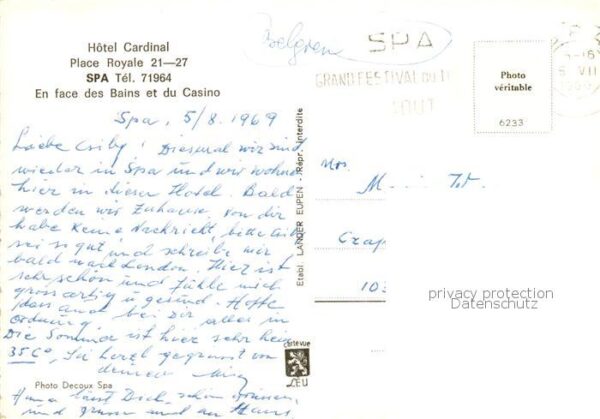 Hôtel Cardinal
Place Royale 21—27
SPA Tél. 71964
En face des Bains et du Casino
Belgien
SPA
GRAND FESTIVAL DU
AOUT
Photo
véritable
6233
VII
Spa, 5/8. 1969
Liebe Csiby! Diesmal wir sind
wieder in Spa und wir wohnen
hier in dieser Hotel. Bald
werden wir Zuhause. Von dir
habe keine Nachricht bitte
sei so gut und schreibe mir
bald nach London. Hier ist
sehr schön und fühle mich
grossartig u gesund. Hoffe
dass auch bei Dir alles in
Ordnung
Die Sommer ist hier sehr heiss
35 C°, Sei herzl gegrüsst von
deinem
lässt Dich schön grüssen
und
Etabl. LANDER EUPEN - Repr. Interdite
Mrs.
M.
103
privacy protection
Datenschutz
Photo Decoux Spa
certevue
SEU